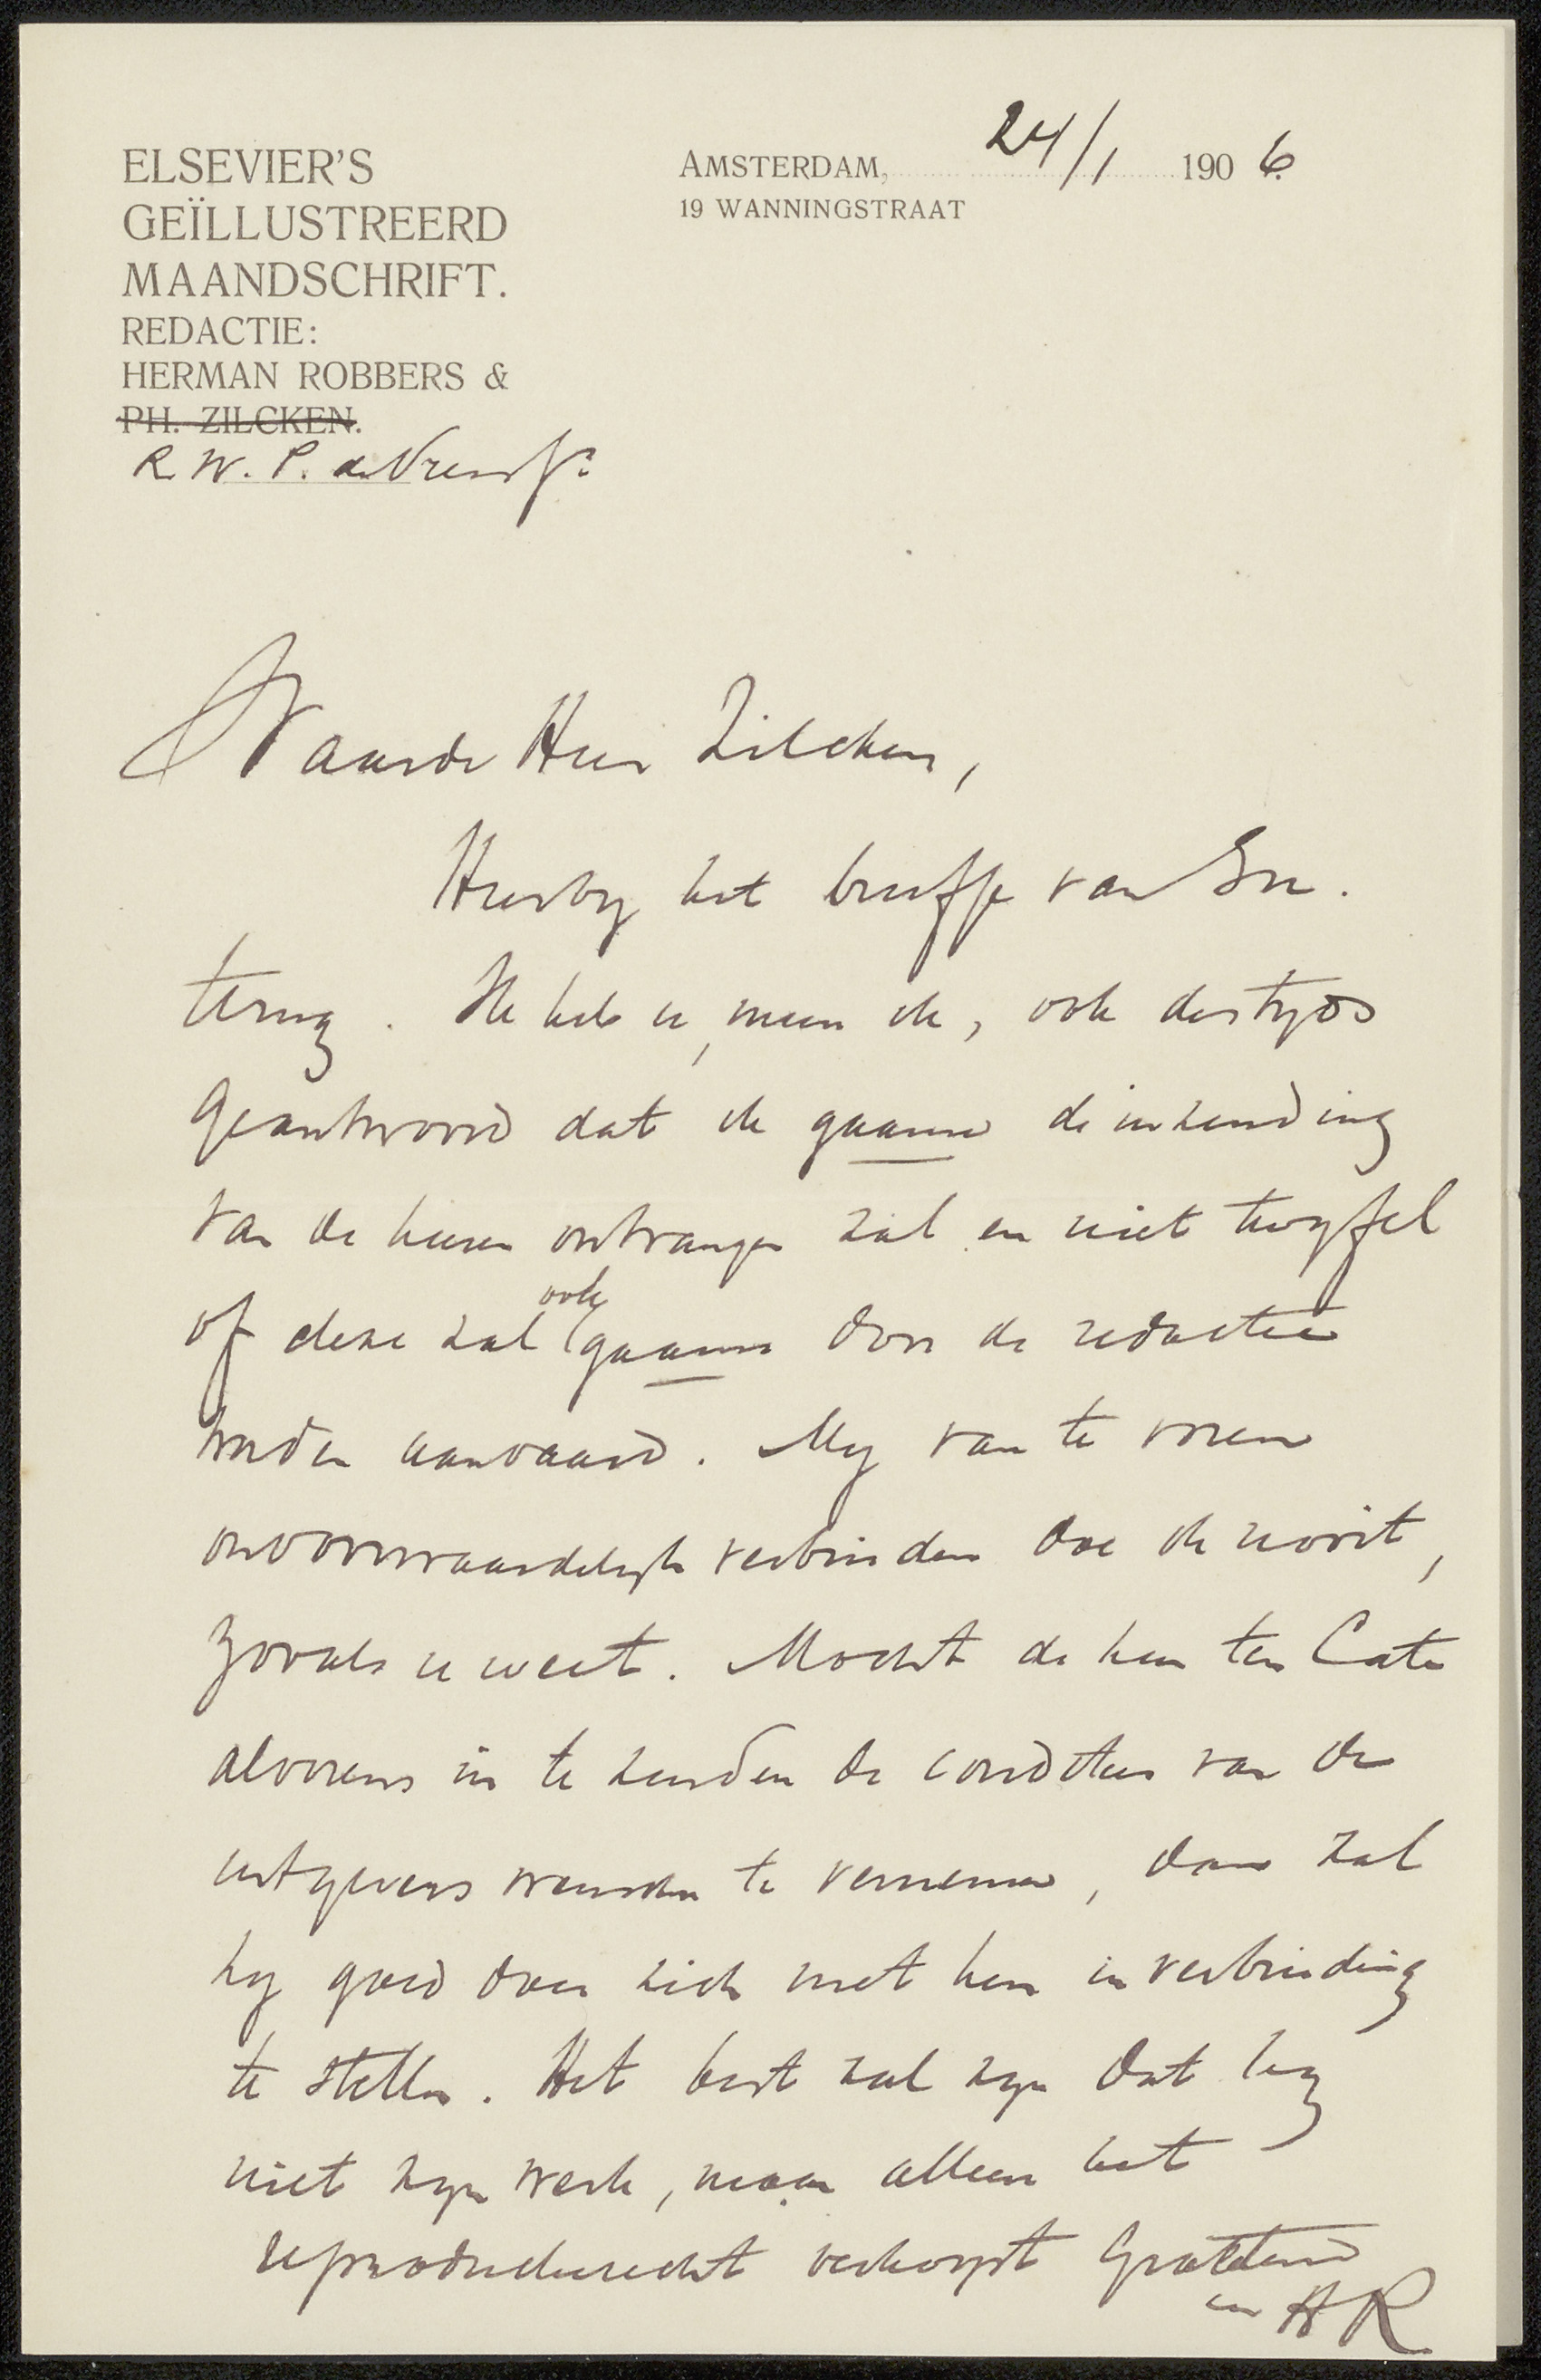 ELSEVIER'S
GEÏLLUSTREERD
MAANDSCHRIFT.
REDACTIE:
HERMAN ROBBERS &
PH. ZILCKEN.
R. W. P. de Vries Jr.
AMSTERDAM, 24/1 1906.
19 WANNINGSTRAAT
Waarde Heer Zilcken,
Hierby het briefje van
terug. Ik heb u, meen ik, ook destyds
geantwoord dat ik gaarne de inzending
van de heeren ontvangen zal en niet twyfel
of deze zal ook gaarne door de redactie
worden aanvaard. My van te voren
onvoorwaardelyk verbinden doe ik nooit,
zooals u weet. Mocht de heer ten Cate
alvorens in te zenden de condities van de
uitgevers wenschen te vernemen, dan zal
hy goed doen zich met hen in verbinding
te stellen. Het best zal zyn dat hy
niet zyn werk, maar alleen het
reproductierecht verkoopt. Groetend
uw HR